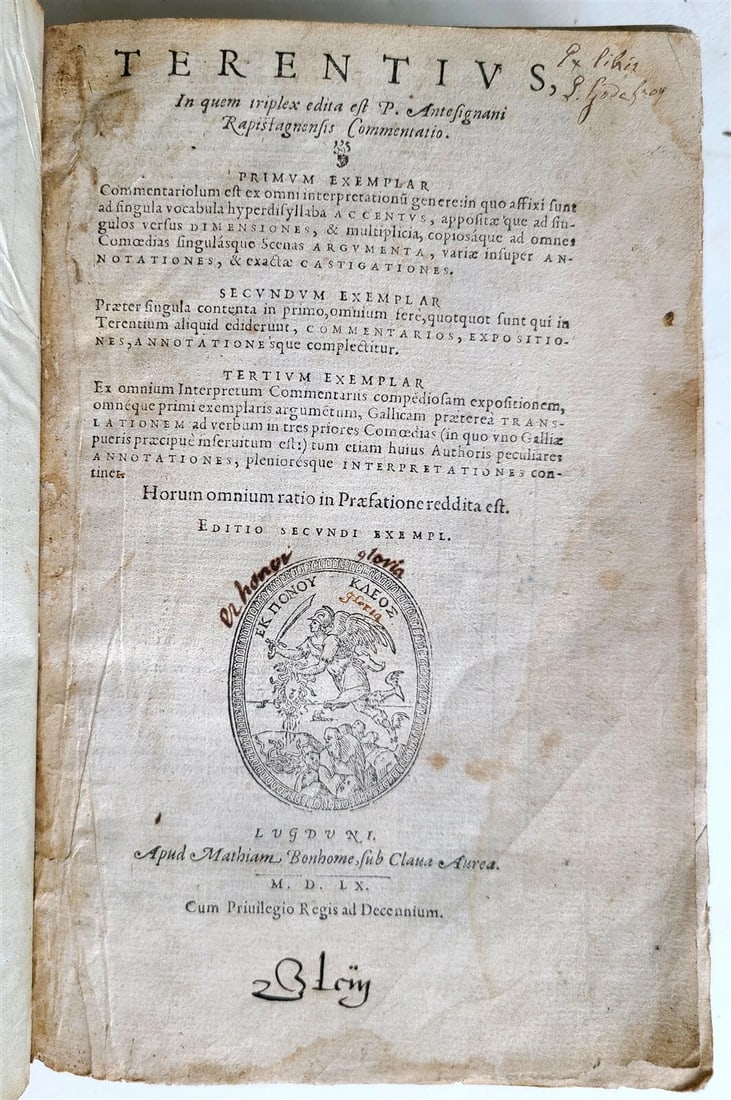 TERENTIVS,
Ex libris
In quem triplex edita est P. Antesignani
Rapistagnensis Commentatio.
PRIMVM EXEMPLAR
Commentariolum est ex omni interpretationū genere: in quo affixi sunt
ad singula vocabula hyperdisyllaba ACCENTVS, appositæ que ad sin-
gulos versus DIMENSIONES, & multiplicia, copiosáque ad omnes
Comœdias singulásque Scenas ARGVMENTA, variæ insuper AN-
NOTATIONES, & exactæ CASTIGATIONES.
SECVNDVM EXEMPLAR
Præter singula contenta in primo, omnium ferè, quotquot sunt qui in
Terentium aliquid ediderunt, COMMENTARIOS, EXPOSITIO-
NES, ANNOTATIONE'sque complectitur.
TERTIVM EXEMPLAR
Ex omnium Interpretum Commentariis compēdiosam expositionem,
omnéque primi exemplaris argumētum, Gallicam prætereà TRANS-
LATIONEM ad verbum in tres priores Comœdias (in quo vno Galliæ
pueris præcipuè inseruitum est:) tum etiam huius Authoris peculiares
ANNOTATIONES, pleniorésque INTERPRETATIONES con-
tinet.
Horum omnium ratio in Præfatione reddita est.
EDITIO SECVNDI EXEMPL.
gloria
ΕΚ ΠΟΝΟΥ ΚΛΕΟΣ
gloria
LVGDVNI,
Apud Mathiam Bonhome, sub Claua Aurea.
M. D. LX.
Cum Priuilegio Regis ad Decennium.